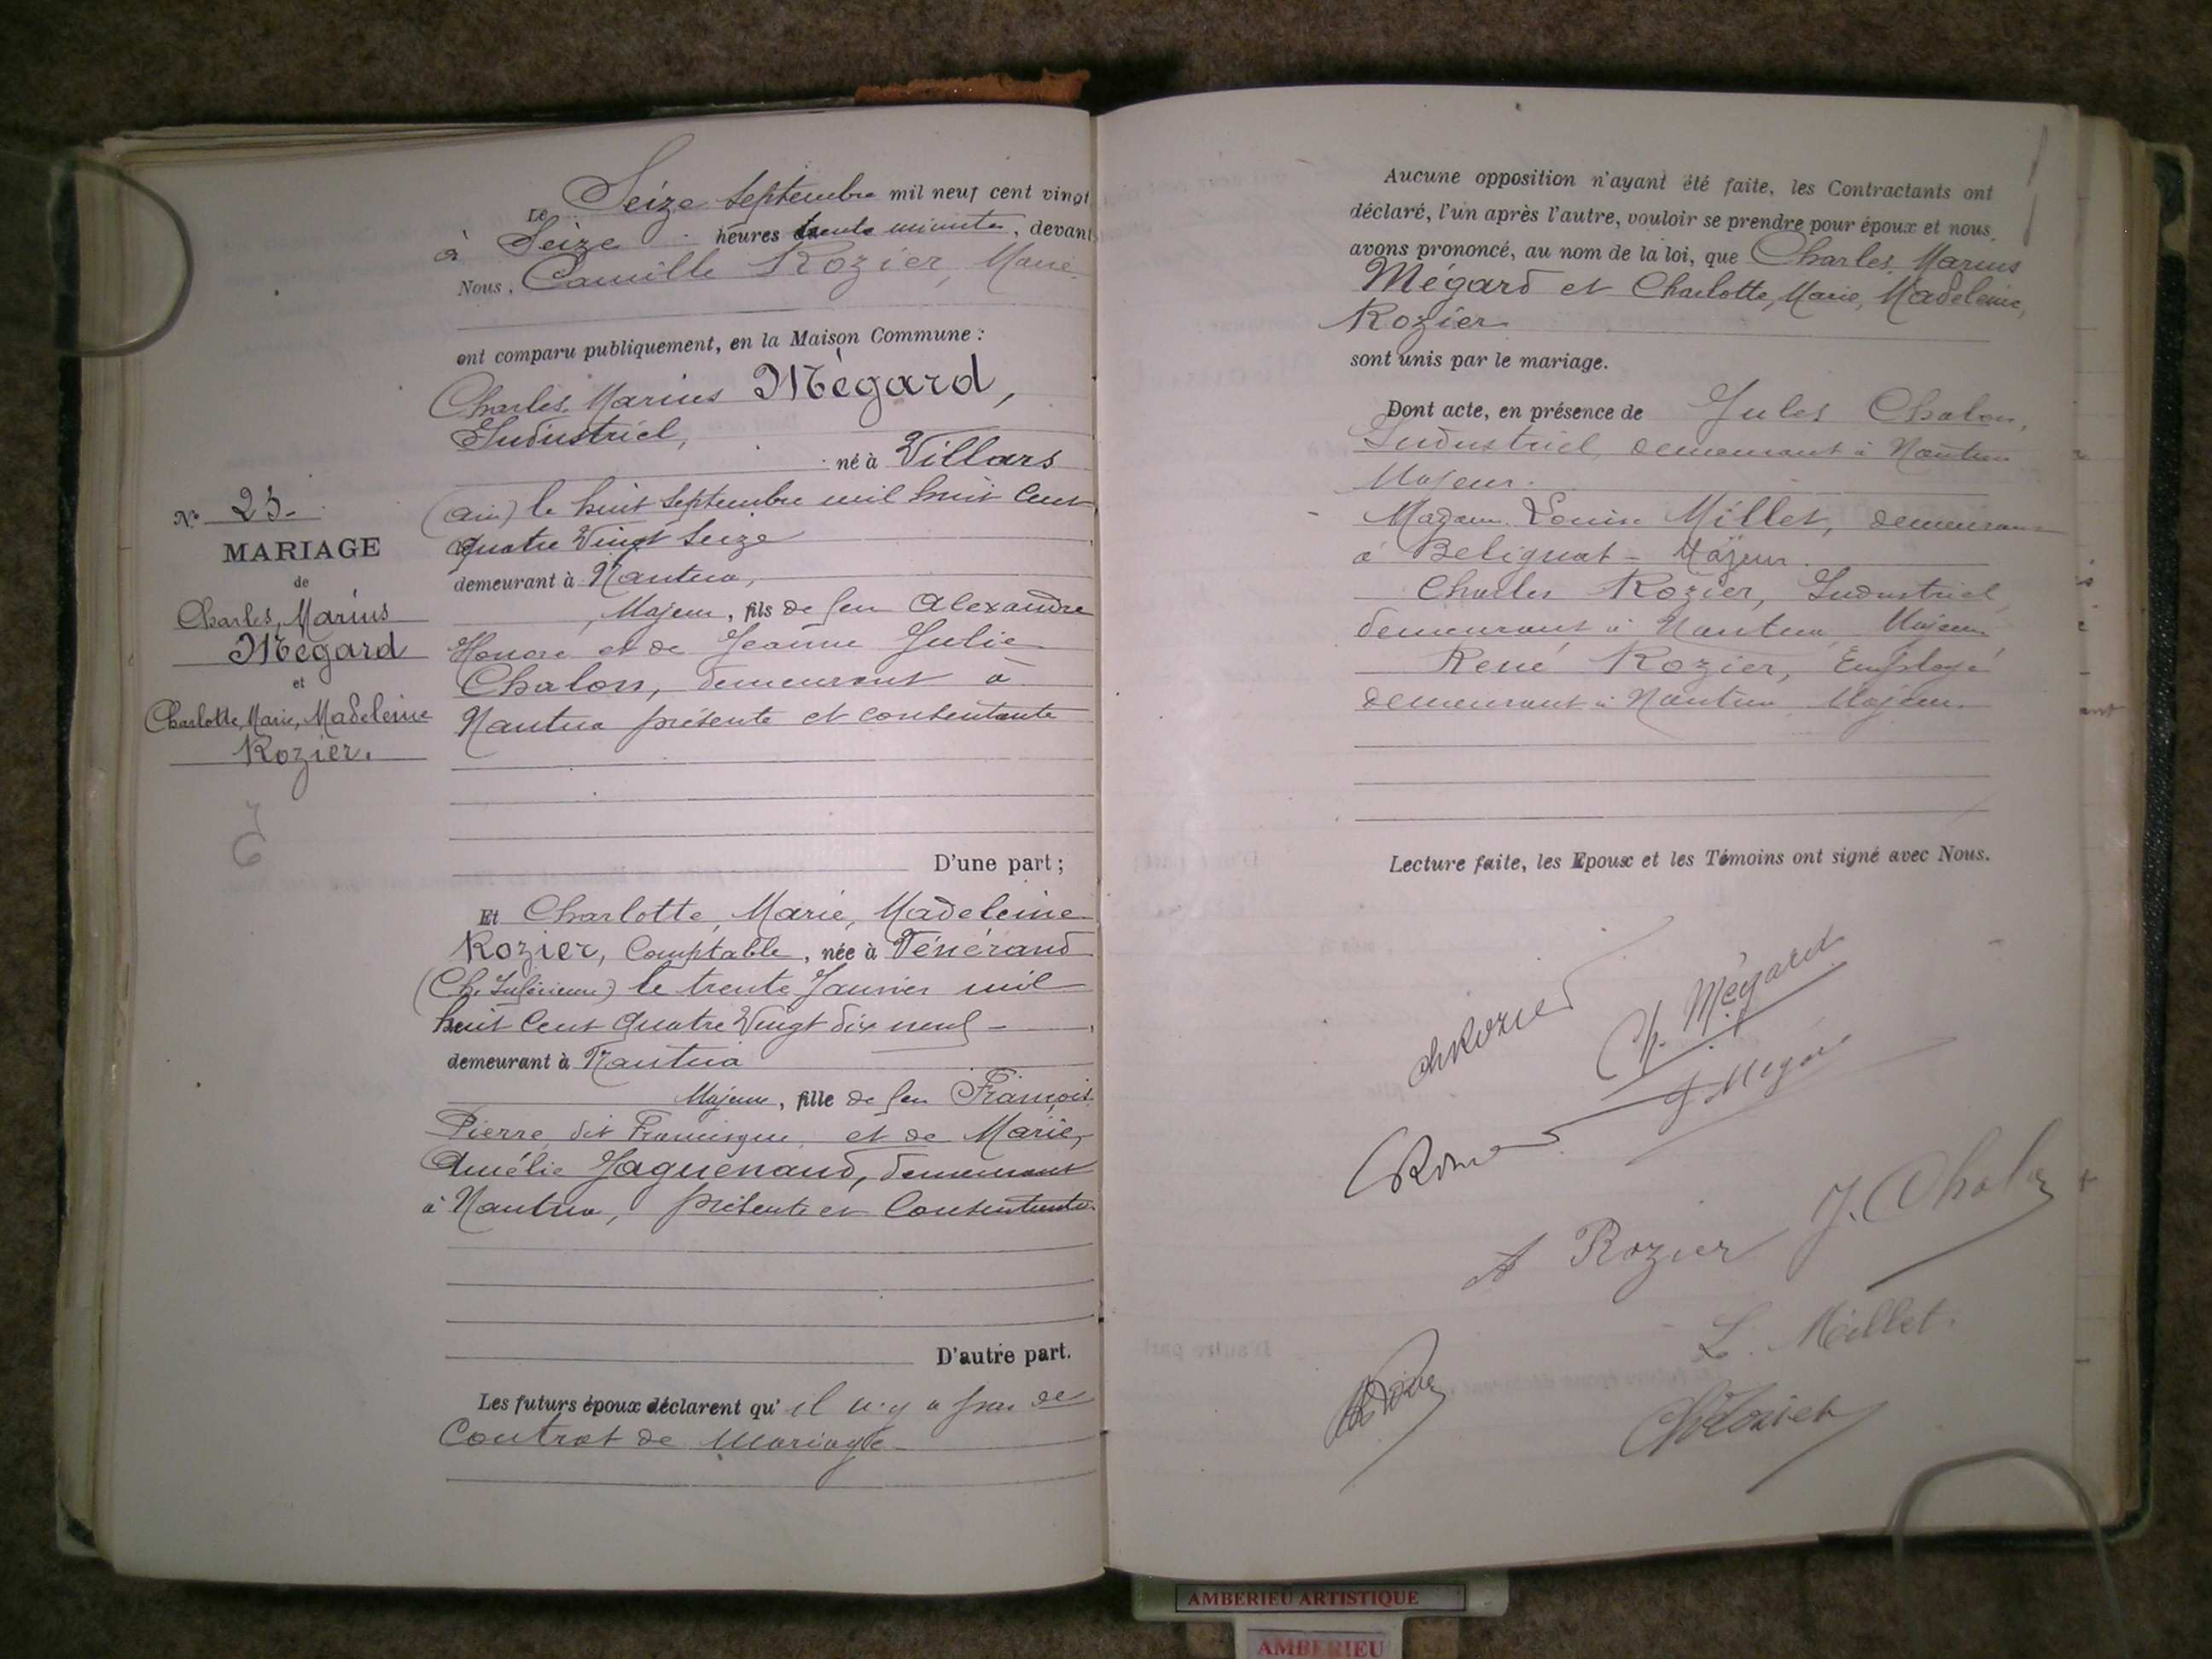 Le Seize Septembre mil neuf cent vingt
à Seize heures trente minutes, devant
Nous, Camille Rozier, Maire
ont comparu publiquement, en la Maison Commune :
Charles, Marius Mégard,
Industriel,
né à Villars
(Ain) le huit Septembre mil huit Cent
quatre Vingt Seize
demeurant à Nantua,
Majeur, fils de feu Alexandre
Honoré et de Jeanne Julie
Chalon, demeurant à
Nantua présente et consentante
D'une part ;
N° 23.
MARIAGE
de
Charles, Marius
Mégard
et
Charlotte, Marie, Madeleine
Rozier.
Et Charlotte, Marie, Madeleine
Rozier, Comptable, née à Vénérand
(Ch. Inférieure) le trente Janvier mil
huit Cent quatre Vingt dix neuf -
demeurant à Nantua
Majeure, fille de feu François
Pierre dit Francisque et de Marie,
Amélie Jaguenaud, demeurant
à Nantua, présente et Consentante
D'autre part.
Les futurs époux déclarent qu' il n'y a pas de
Contrat de Mariage -
Aucune opposition n'ayant été faite, les Contractants ont
déclaré, l'un après l'autre, vouloir se prendre pour époux et nous
avons prononcé, au nom de la loi, que Charles, Marius
Mégard et Charlotte, Marie, Madeleine,
Rozier
sont unis par le mariage.
Dont acte, en présence de Jules Chalon,
Industriel, demeurant à Nantua
Majeur.
Madame Louise Millet, demeurant
à Belignat - Majeur.
Charles Rozier, Industriel,
demeurant à Nantua, Majeur
René Rozier, Employé
demeurant à Nantua Majeur.
Lecture faite, les Epoux et les Témoins ont signé avec Nous.
Ch. Mégard
J. Mégard
A Rozier
J. Chalon
L. Millet.
AMBERIEU ARTISTIQUE
AMBERIEU